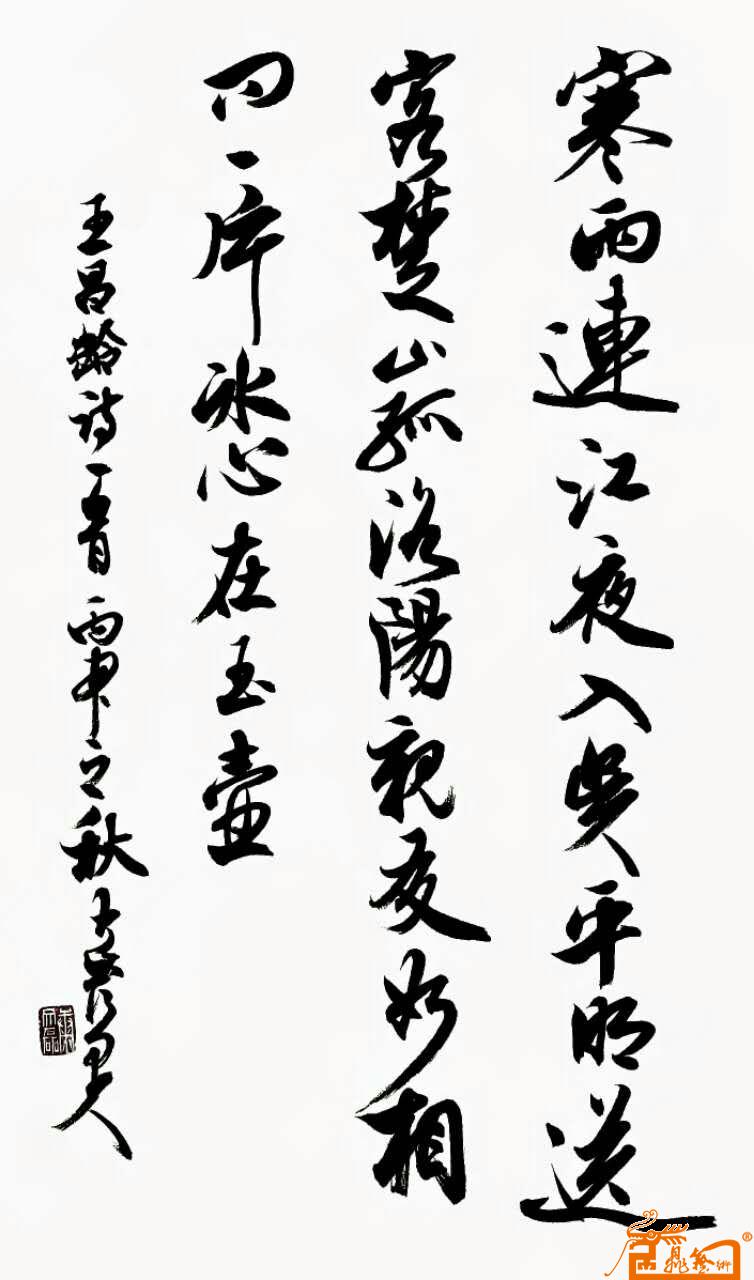 寒雨連江夜入吳平明送
客楚山孤洛陽親友如相
问一片冰心在玉壺
王昌齡诗一首丙申之秋
鼎藝術